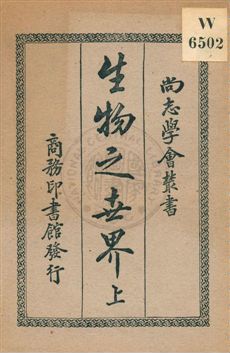 W
6502
尚志學會叢書
生物之世界上
商務印書館發行